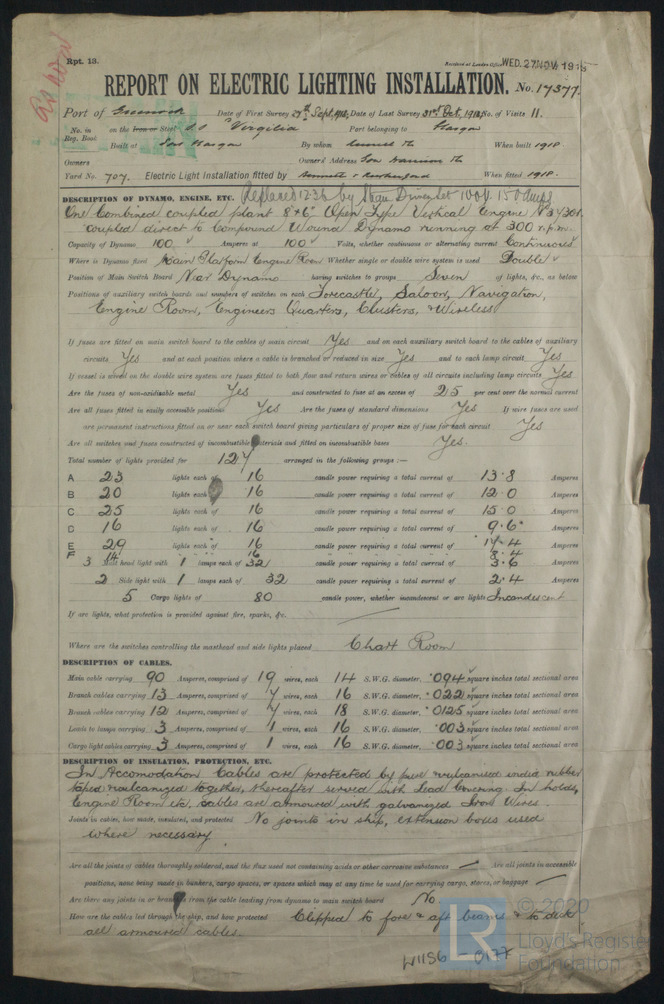 Rpt. 13.
Received at London Office WED. 27 NOV. 1918
REPORT ON ELECTRIC LIGHTING INSTALLATION. No. 17377.
Port of Greenock Date of First Survey 27th Sept, 1918, Date of Last Survey 31st Oct, 1918, No. of Visits 11.
No. in Reg. Book on the Iron or Steel S.S "Virgilia" Port belonging to Glasgow
Built at Port Glasgow By whom When built 1918
Owners Owners' Address
Yard No. 707. Electric Light Installation fitted by When fitted 1918.
DESCRIPTION OF DYNAMO, ENGINE, ETC. Replaced 12-36 by Steam Driven Set 100 V. 150 amps
One Combined coupled plant 8 x 6" Open Type Vertical Engine
coupled direct to Compound Wound Dynamo running at 300 r.p.m.
Capacity of Dynamo 100 Amperes at 100 Volts, whether continuous or alternating current Continuous
Where is Dynamo fixed Main Platform Engine Room Whether single or double wire system is used Double
Position of Main Switch Board Near Dynamo having switches to groups Seven of lights, &c., as below
Positions of auxiliary switch boards and numbers of switches on each Forecastle, Saloon, Navigation,
Engine Room, Engineers Quarters, Clusters, & Wireless
If fuses are fitted on main switch board to the cables of main circuit Yes and on each auxiliary switch board to the cables of auxiliary
circuits Yes and at each position where a cable is branched or reduced in size Yes and to each lamp circuit Yes
If vessel is wired on the double wire system are fuses fitted to both flow and return wires or cables of all circuits including lamp circuits Yes
Are the fuses of non-oxidisable metal Yes and constructed to fuse at an excess of 25 per cent over the normal current
Are all fuses fitted in easily accessible positions Yes Are the fuses of standard dimensions Yes If wire fuses are used
are permanent instructions fitted on or near each switch board giving particulars of proper size of fuse for each circuit Yes
Are all switches and fuses constructed of incombustible materials and fitted on incombustible bases Yes.
Total number of lights provided for 127 arranged in the following groups :—
A 23 lights each of 16 candle power requiring a total current of 13.8 Amperes
B 20 lights each of 16 candle power requiring a total current of 12.0 Amperes
C 25 lights each of 16 candle power requiring a total current of 15.0 Amperes
D 16 lights each of 16 candle power requiring a total current of 9.6 Amperes
E 29 lights each of 16 candle power requiring a total current of 17.4 Amperes
F 14 16 8.4
3 Mast head light with 1 lamps each of 32 candle power requiring a total current of 3.6 Amperes
2 Side light with 1 lamps each of 32 candle power requiring a total current of 2.4 Amperes
5 Cargo lights of 80 candle power, whether incandescent or arc lights Incandescent
If arc lights, what protection is provided against fire, sparks, &c.
Where are the switches controlling the masthead and side lights placed Chart Room
DESCRIPTION OF CABLES.
Main cable carrying 90 Amperes, comprised of 19 wires, each 14 S.W.G. diameter, .094 square inches total sectional area
Branch cables carrying 13 Amperes, comprised of 7 wires, each 16 S.W.G. diameter, .022 square inches total sectional area
Branch cables carrying 12 Amperes, comprised of 7 wires, each 18 S.W.G. diameter, .0125 square inches total sectional area
Leads to lamps carrying 3 Amperes, comprised of 1 wires, each 16 S.W.G. diameter, .003 square inches total sectional area
Cargo light cables carrying 3 Amperes, comprised of 1 wires, each 16 S.W.G. diameter, .003 square inches total sectional area
DESCRIPTION OF INSULATION, PROTECTION, ETC.
In Accomodation Cables are protected by pure & vulcanised india rubber
taped & vulcanized together, thereafter served with Lead Covering. In holds,
Engine Room etc. cables are armoured with galvanized Iron Wires.
Joints in cables, how made, insulated, and protected No joints in ship, extension boxes used
where necessary.
Are all the joints of cables thoroughly soldered, and the flux used not containing acids or other corrosive substances — Are all joints in accessible
positions, none being made in bunkers, cargo spaces, or spaces which may at any time be used for carrying cargo, stores, or baggage —
Are there any joints in or branches from the cable leading from dynamo to main switch board No
How are the cables led through the ship, and how protected Clipped to fore & aft beams & to deck
all armoured cables.
© 2020
LR
Lloyd's Register
Foundation
W1156 - 0177